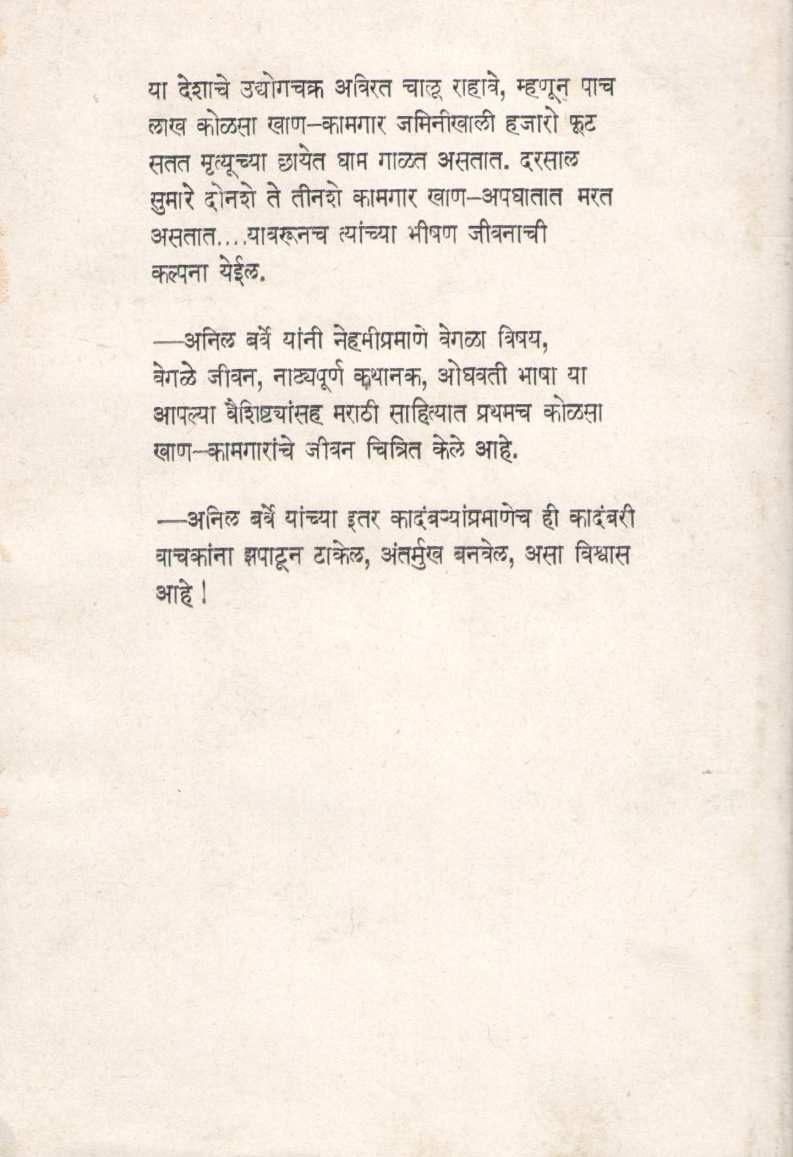 या देशाचे उद्योगचक्र अविरत चालू राहावे, म्हणून पाच
लाख कोळसा खाण–कामगार जमिनीखाली हजारो फूट
सतत मृत्यूच्या छायेत घाम गाळत असतात. दरसाल
सुमारे दोनशे ते तीनशे कामगार खाण–अपघातात मरत
असतात....यावरूनच त्यांच्या भीषण जीवनाची
कल्पना येईल.
—अनिल बर्वे यांनी नेहमीप्रमाणे वेगळा विषय,
वेगळे जीवन, नाट्यपूर्ण कथानक, ओघवती भाषा या
आपल्या वैशिष्ट्यांसह मराठी साहित्यात प्रथमच कोळसा
खाण–कामगारांचे जीवन चित्रित केले आहे.
—अनिल बर्वे यांच्या इतर कादंबऱ्यांप्रमाणेच ही कादंबरी
वाचकांना झपाटून टाकेल, अंतर्मुख बनवेल, असा विश्वास
आहे !